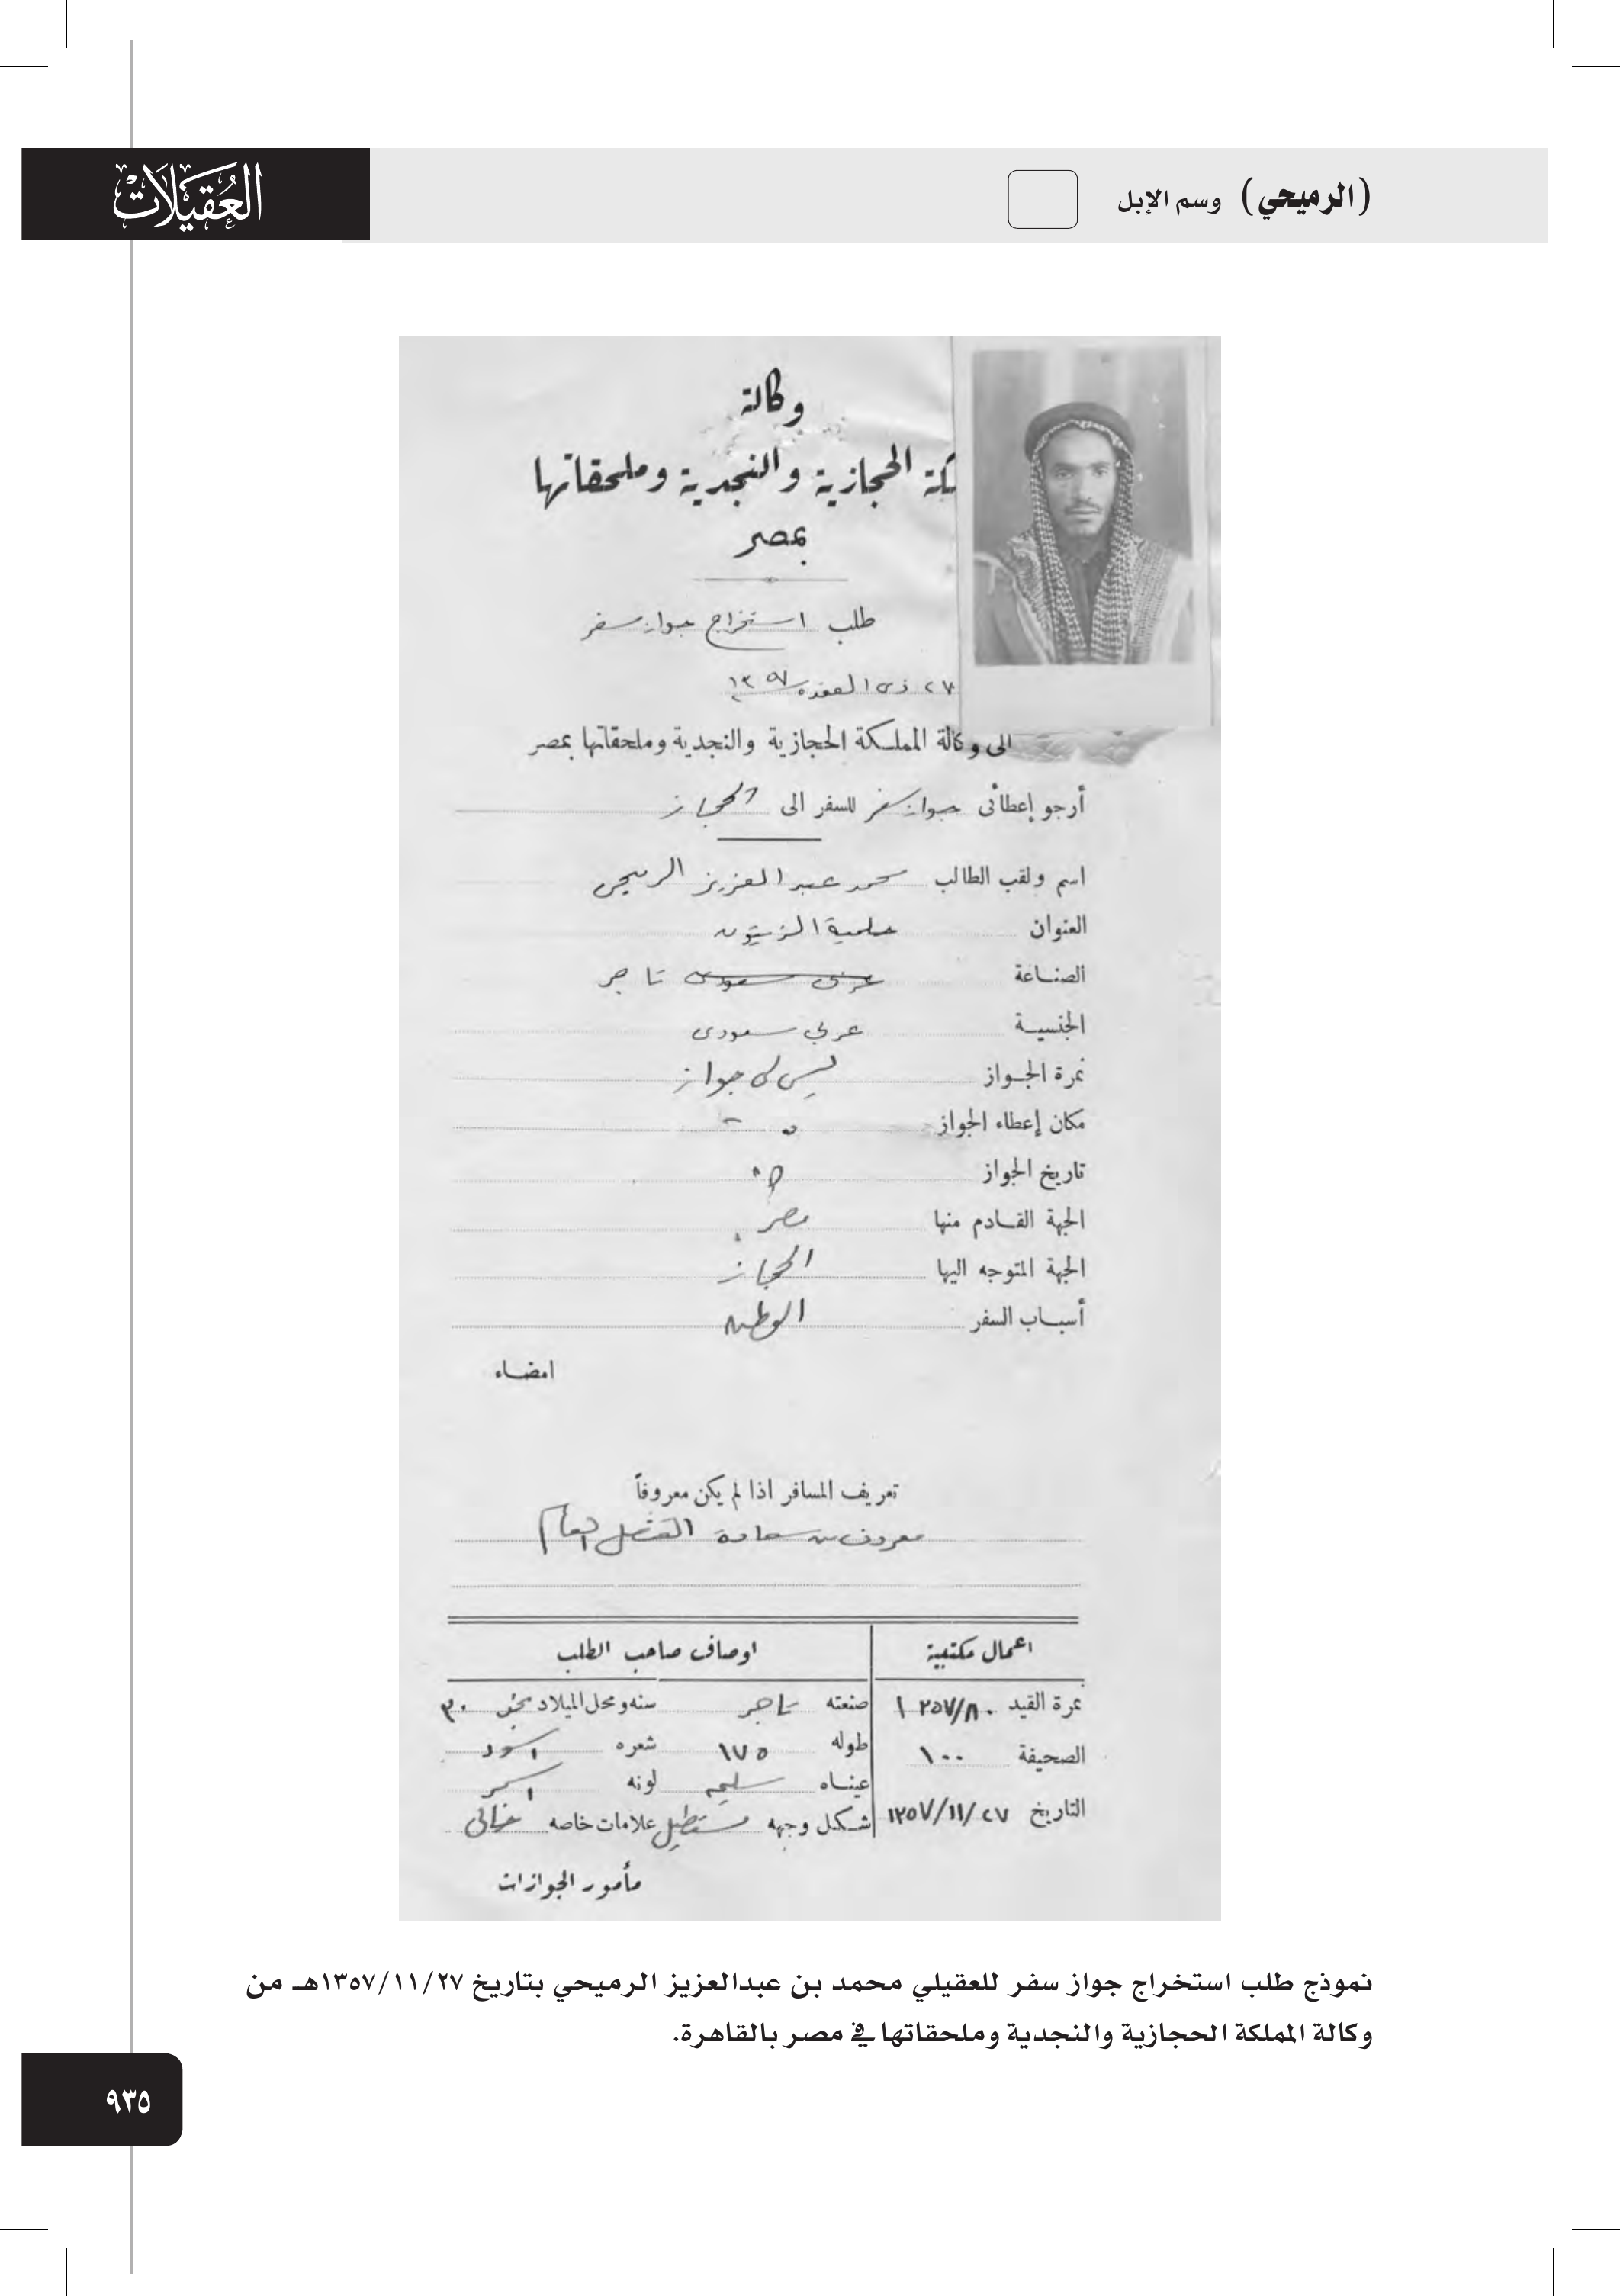 (الرميحي) وسم الإبل
العُقَيْلَاتْ
وكالة
كة الحجازية والنجدية وملحقاتها
بمصر
طلب استخراج جواز سفر
٢٧ ذى القعده ١٣٥٧
الى وكالة المملكة الحجازية والنجدية وملحقاتها بمصر
أرجو إعطائى جواز سفر للسفر الى الحجاز
اسم ولقب الطالب محمد عبد العزيز الرميحى
العنوان حلمية الزيتون
الصناعة عربى سعودى تاجر
الجنسية عربي سعودى
نمرة الجواز ليس لى جواز
مكان إعطاء الجواز
تاريخ الجواز
الجهة القادم منها مصر
الجهة المتوجه اليها الحجاز
أسباب السفر
امضاء
تعريف المسافر اذا لم يكن معروفاً
معروف من سعادة القنصل العام
اعمال مكتبية
اوصاف صاحب الطلب
نمرة القيد ٢٥٧/٨٠
صنعته تاجر سنه ومحل الميلاد ٣٠
الصحيفة ١٠٠
طوله ١٧٥ شعره اسود
عيناه سليمه لونه اسمر
التاريخ ١٣٥٧/١١/٢٧
شكل وجهه مستطيل علامات خاصه
مأمور الجوازات
نموذج طلب استخراج جواز سفر للعقيلي محمد بن عبدالعزيز الرميحي بتاريخ ١٣٥٧/١١/٢٧هـ من
وكالة المملكة الحجازية والنجدية وملحقاتها في مصر بالقاهرة.
٩٣٥